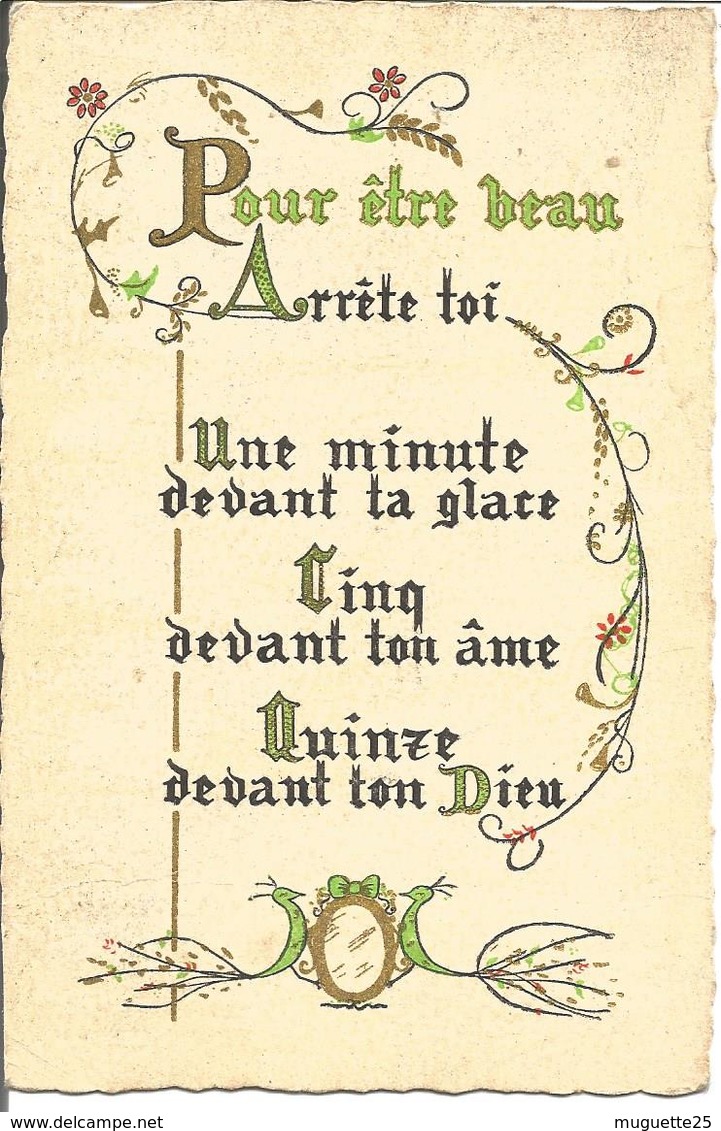 Pour être beau
Arrête toi
Une minute
devant ta glace
Cinq
devant ton âme
Quinze
devant ton Dieu
delcampe.net
muguette25